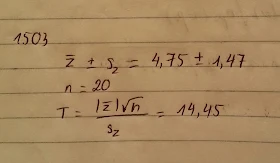 1503
z̄ ± s_z = 4,75 ± 1,47
n = 20
T = |z̄|√n / s_z = 14,45